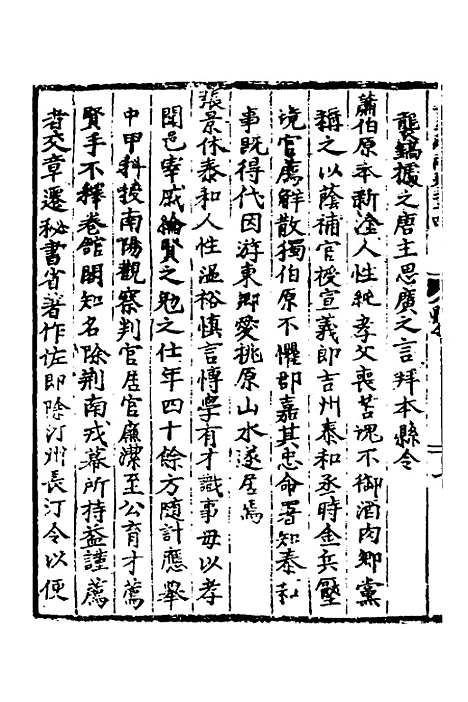 龔鎬據之唐主思廣之言拜本縣令
蕭伯原本新淦人性純孝父喪苫塊不御酒肉鄉黨
稱之以蔭補官授宣義郎吉州泰和丞時金兵壓
境官属解散獨伯原不懼郡嘉其忠命署知泰和
事既得代因游東鄉愛桃原山水遂居焉
張景休泰和人性溫裕慎言慱學有才識事母以孝
聞邑宰戚綸賢之勉之仕年四十餘方随計應舉
中甲科授南陽觀察判官居官廉潔至公育才薦
賢手不釋卷舘閣知名除荆南戎幕所持益謹薦
者交章遷秘書省著作佐郎除汀州長汀令以便